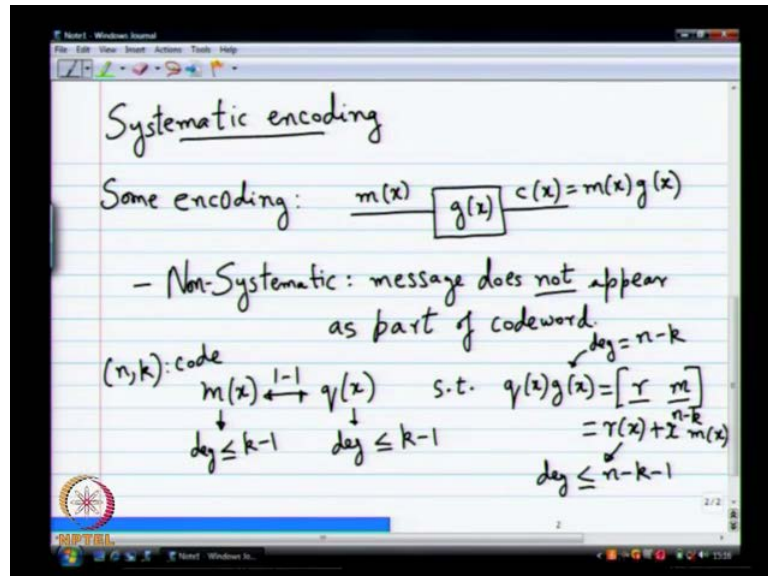 Note1 - Windows Journal
File Edit View Insert Actions Tools Help
Systematic encoding
Some encoding: m(x) g(x) c(x)=m(x)g(x)
- Non-Systematic: message does not appear
as part of codeword.
(n,k): code
deg = n-k
m(x) 1-1 q(x) s.t. q(x)g(x)=[r m]
= r(x)+x^{n-k} m(x)
deg ≤ k-1 deg ≤ k-1
deg ≤ n-k-1
2/2
2
NPTEL
Note1 - Windows Jo...
15:16